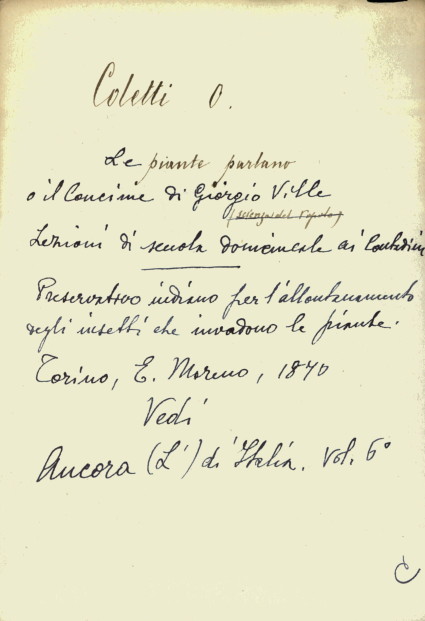 Coletti O.
Le piante parlano
o il Concime di Giorgio Ville
(scienza del Popolo)
Lezioni di scuola domenicale ai Contadini
Preservativo indiano per l'allontanamento
degli insetti che invadono le piante.
Torino, E. Moreno, 1870
Vedi
Ancora (L') di Italia. Vol. 6°
C